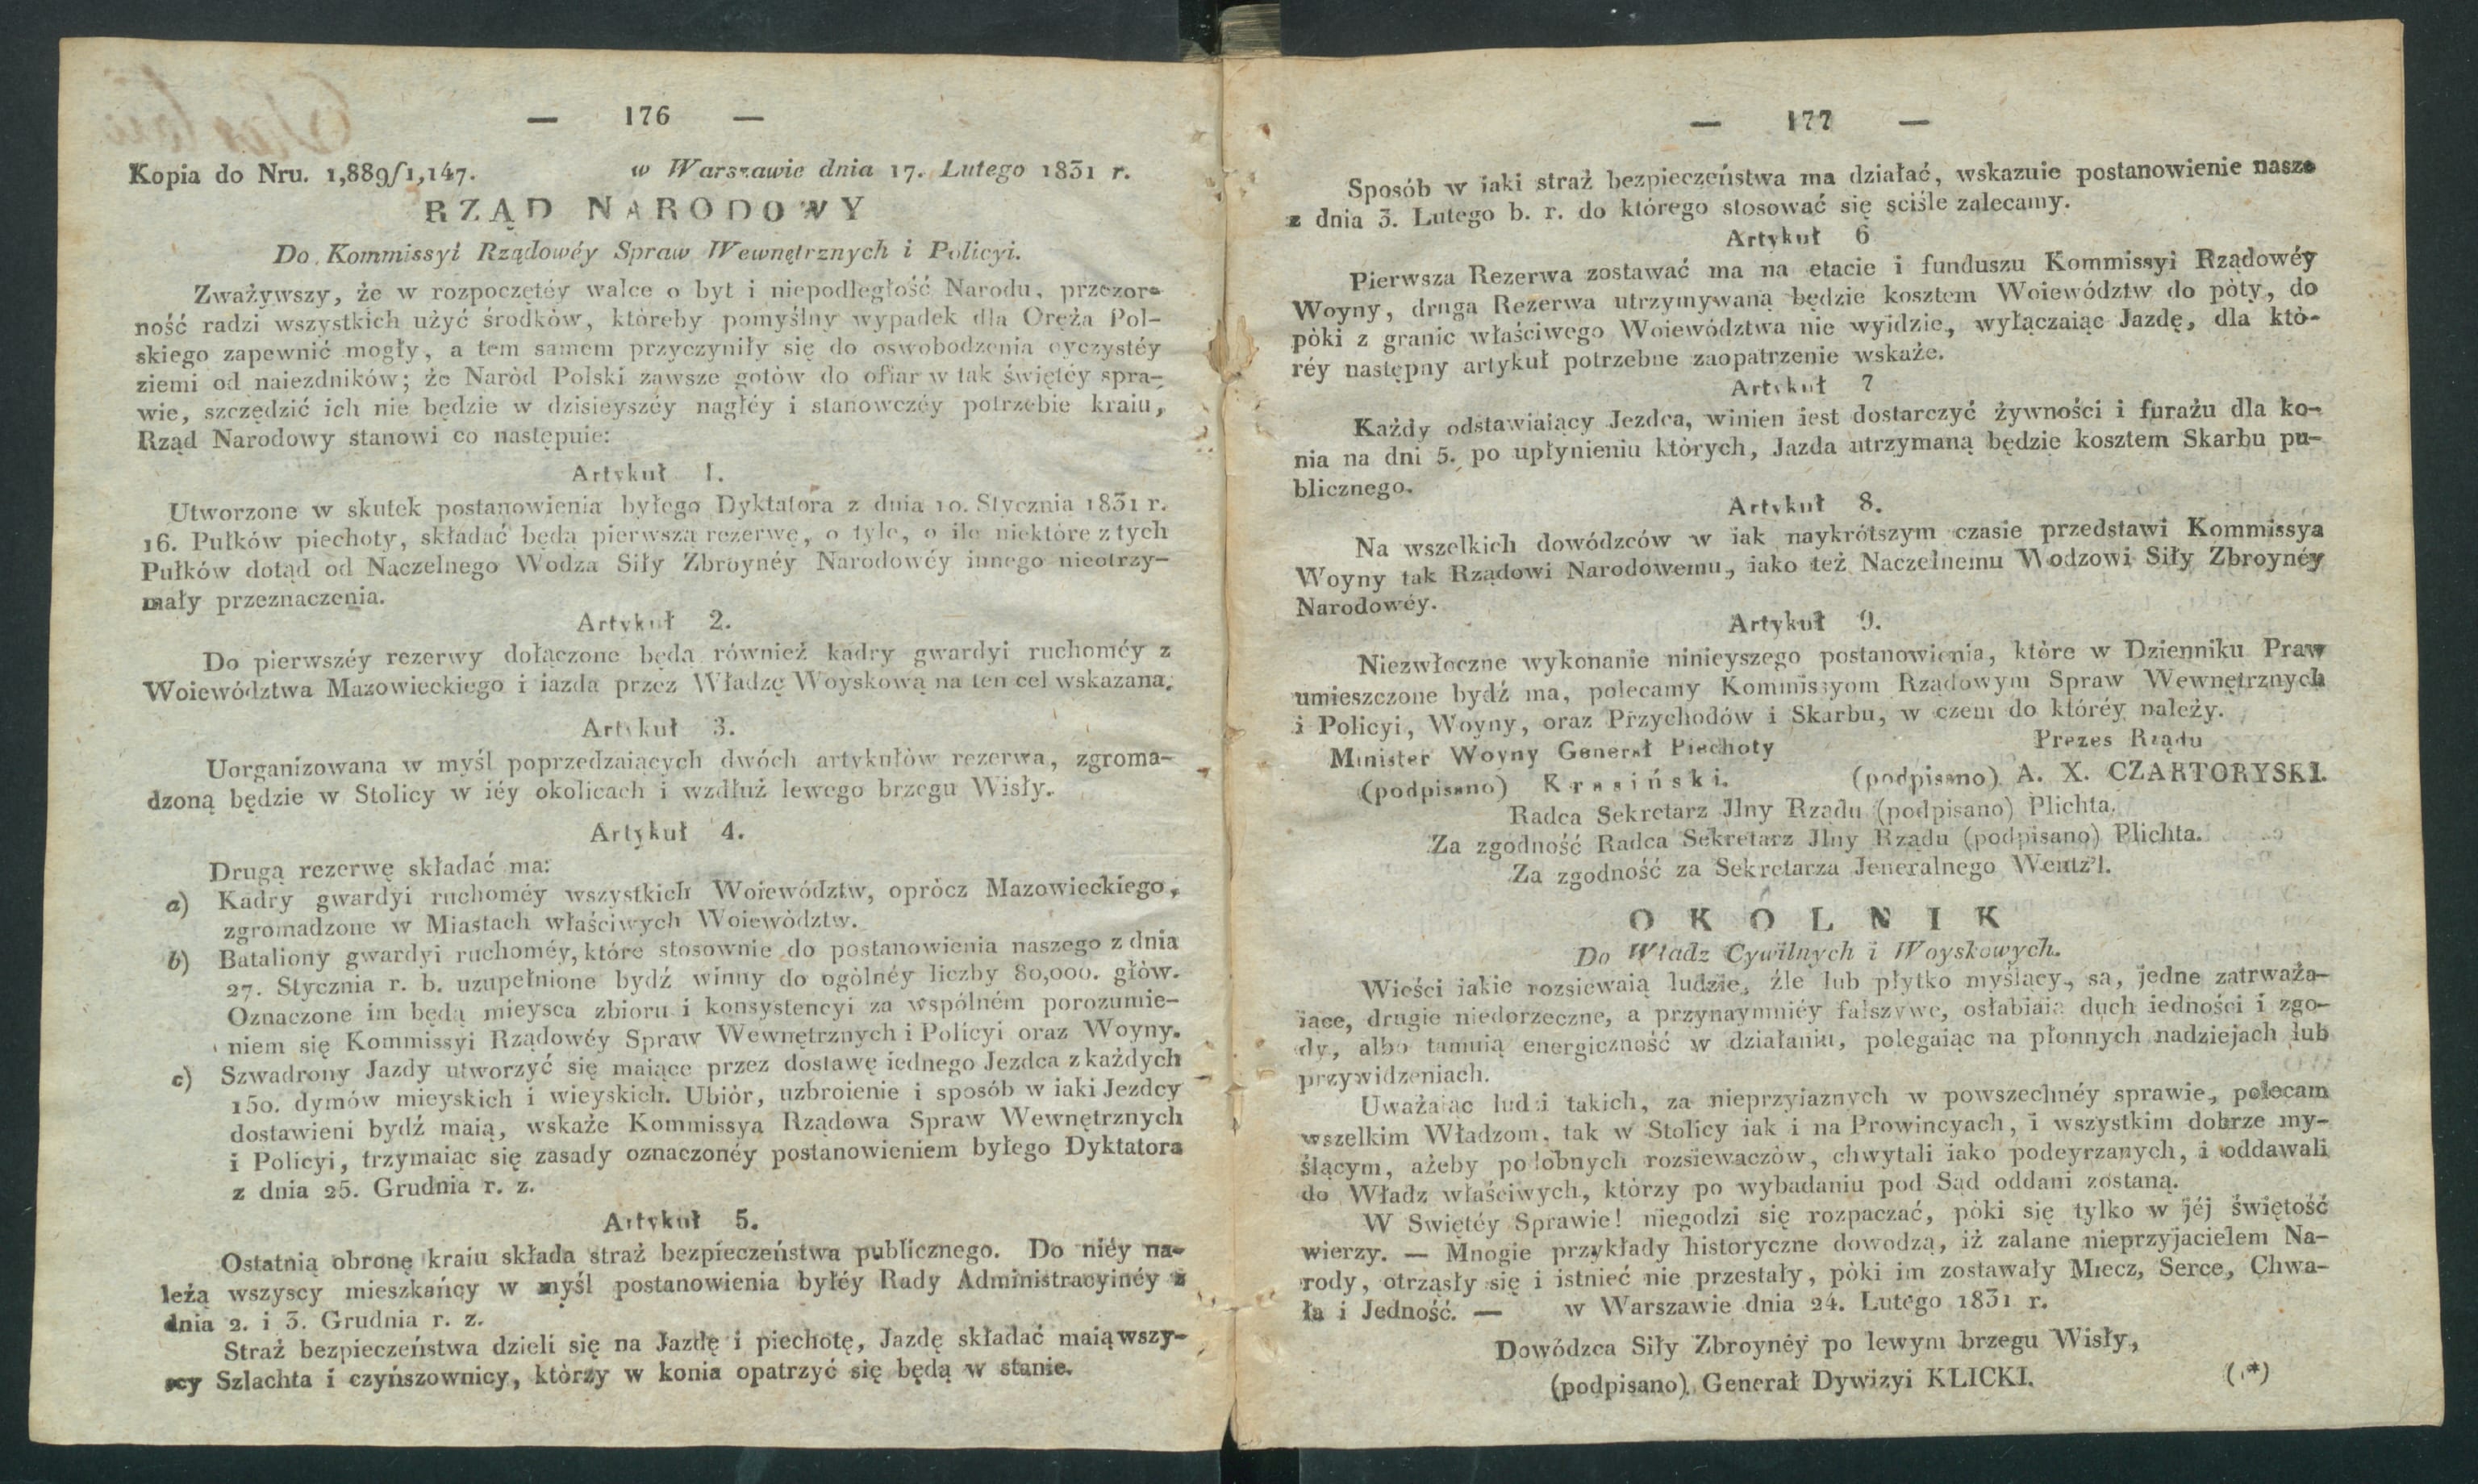 — 176 —
Kopia do Nru. 1,889/1,147. w Warszawie dnia 17. Lutego 1831 r.
RZĄD NARODOWY
Do Kommissyi Rządowéy Spraw Wewnętrznych i Policyi.
Zważywszy, że w rozpoczętéy walce o byt i niepodległość Narodu, przezor-
ność radzi wszystkich użyć środków, któreby pomyślny wypadek dla Oręża Pol-
skiego zapewnić mogły, a tem samem przyczyniły się do oswobodzenia oyczystéy
ziemi od naiezdników; że Naród Polski zawsze gotów do ofiar w tak świętéy spra-
wie, szczędzić ich nie będzie w dzisieyszéy nagłéy i stanowczéy potrzebie kraiu,
Rząd Narodowy stanowi co następuie:
Artykuł 1.
Utworzone w skutek postanowienia byłego Dyktatora z dnia 10. Stycznia 1831 r.
16. Pułków piechoty, składać będą pierwszą rezerwę, o tyle, o ile niektóre z tych
Pułków dotąd od Naczelnego Wodza Siły Zbroynéy Narodowéy innego nieotrzy-
mały przeznaczenia.
Artykuł 2.
Do pierwszéy rezerwy dołączone będą również kadry gwardyi ruchoméy z
Woiewództwa Mazowieckiego i iazda przez Władzę Woyskową na ten cel wskazana.
Artykuł 3.
Uorganizowana w myśl poprzedzaiących dwóch artykułów rezerwa, zgroma-
dzoną będzie w Stolicy w iéy okolicach i wzdłuż lewego brzegu Wisły.
Artykuł 4.
Drugą rezerwę składać ma:
a) Kadry gwardyi ruchoméy wszystkich Woiewództw, oprócz Mazowieckiego,
zgromadzone w Miastach właściwych Woiewództw.
b) Bataliony gwardyi ruchoméy, które stosownie do postanowienia naszego z dnia
27. Stycznia r. b. uzupełnione bydź winny do ogólnéy liczby 80,000. głów.
Oznaczone im będą mieysca zbioru i konsystencyi za wspólném porozumie-
niem się Kommissyi Rządowéy Spraw Wewnętrznych i Policyi oraz Woyny.
c) Szwadrony Jazdy utworzyć się maiące przez dostawę iednego Jezdca z każdych
150. dymów mieyskich i wieyskich. Ubiór, uzbroienie i sposób w iaki Jezdcy
dostawieni bydź maią, wskaże Kommissya Rządowa Spraw Wewnętrznych
i Policyi, trzymaiąc się zasady oznaczonéy postanowieniem byłego Dyktatora
z dnia 25. Grudnia r. z.
Artykuł 5.
Ostatnią obronę kraiu składa straż bezpieczeństwa publicznego. Do niéy na-
leżą wszyscy mieszkańcy w myśl postanowienia byłéy Rady Administracyinéy z
dnia 2. i 3. Grudnia r. z.
Straż bezpieczeństwa dzieli się na Jazdę i piechotę, Jazdę składać maią wszy-
scy Szlachta i czyńszownicy, którzy w konia opatrzyć się będą w stanie.
— 177 —
Sposób w iaki straż bezpieczeństwa ma działać, wskazuie postanowienie nasze
z dnia 3. Lutego b. r. do którego stosować się sciśle zalecamy.
Artykuł 6
Pierwsza Rezerwa zostawać ma na etacie i funduszu Kommissyi Rządowéy
Woyny, druga Rezerwa utrzymywaną będzie kosztem Woiewództw do póty, do
póki z granic właściwego Woiewództwa nie wyidzie, wyłączaiąc Jazdę, dla któ-
réy następny artykuł potrzebne zaopatrzenie wskaże.
Artykuł 7
Każdy odstawiaiący Jezdca, winien iest dostarczyć żywności i furażu dla ko-
nia na dni 5. po upłynieniu których, Jazda utrzymaną będzie kosztem Skarbu pu-
blicznego.
Artykuł 8.
Na wszelkich dowódzców w iak naykrótszym czasie przedstawi Kommissya
Woyny tak Rządowi Narodowemu, iako też Naczelnemu Wodzowi Siły Zbroynéy
Narodowéy.
Artykuł 9.
Niezwłoczne wykonanie ninieyszego postanowienia, które w Dzienniku Praw
umieszczone bydź ma, polecamy Kommissyom Rządowym Spraw Wewnętrznych
i Policyi, Woyny, oraz Przychodów i Skarbu, w czem do któréy należy.
Minister Woyny Generał Piechoty Prezes Rządu
(podpisano) Krasiński. (podpisano) A. X. CZARTORYSKI.
Radca Sekretarz Jlny Rządu (podpisano) Plichta.
Za zgodność Radca Sekretarz Jlny Rządu (podpisano) Plichta.
Za zgodność za Sekretarza Jeneralnego Wentz'l.
OKÓLNIK
Do Władz Cywilnych i Woyskowych.
Wieści iakie rozsiewaią ludzie, źle lub płytko myślący, są, jedne zatrważa-
iące, drugie niedorzeczne, a przynaymniéy fałszywe, osłabiaią duch iedności i zgo-
dy, albo tamuią energiczność w działaniu, polegaiąc na płonnych nadziejach lub
przywidzeniach.
Uważaiąc ludzi takich, za nieprzyiaznych w powszechnéy sprawie, polecam
wszelkim Władzom, tak w Stolicy iak i na Prowincyach, i wszystkim dobrze my-
ślącym, ażeby podobnych rozsiewaczów, chwytali iako podeyrzanych, i oddawali
do Władz właściwych, którzy po wybadaniu pod Sąd oddani zostaną.
W Swiętéy Sprawie! niegodzi się rozpaczać, póki się tylko w jéj świętość
wierzy. — Mnogie przykłady historyczne dowodzą, iż zalane nieprzyjacielem Na-
rody, otrząsły się i istnieć nie przestały, póki im zostawały Miecz, Serce, Chwa-
ła i Jedność. — w Warszawie dnia 24. Lutego 1831 r.
Dowódzca Siły Zbroynéy po lewym brzegu Wisły,
(podpisano) Generał Dywizyi KLICKI. (*)